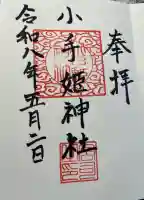 奉拝
小手姫神社
令和八年五月二日